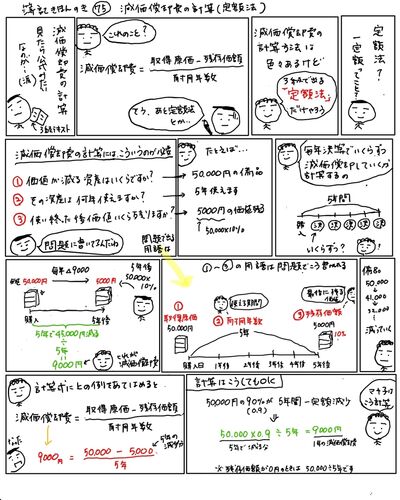 簿記きほんのき 75 減価償却費の計算(定額法)
減価償却費の計算
見たら公式みたい
なのが…(涙)
3級テキスト
これのこと?
減価償却費 = 取得原価 − 残存価額
耐用年数
そう、あと定額法
とか…
減価償却費の
計算方法は
色々あるけど
3級で出る
「定額法」
だけやろう
定額法?
一定額ってこと?
減価償却費の計算にはこういうのが必要
① 価値が減る資産はいくらですか?
② その資産は何年使えますか?
③ 使い終った後価値いくら残りますか?
問題に書いてるんだね
問題で出る
用語は
たとえば…
50,000円の備品
5年使えます
5000円の価値残る
50,000×10%
毎年決算でいくらずつ
減価償却費をPLしていくか
計算するの
5年間
購入
決 決 決 決 決
いくらずつ?
毎年△9000
5年後
50,000円
5000円
50,000×
10%
購入
5年後
5年で45,000円減る
÷
5年
9000円
これが
減価償却費
①〜③の用語は問題でこう書かれる
①
取得原価
50,000円
使える期間
②耐用年数
5年
最後に残る
価値
③残存価額
5000円
10%
購入日 1年後 2年後 3年後 4年後 5年後
備品
50,000
↓
41,000
↓
32,000
↓
減っていく
計算式に上の例をあてはめると
減価償却費 = 取得原価 − 残存価額
耐用年数
9000円 = 50,000 − 5000
5年
計算はこうしてもOK
50000円の90%が5年間一定額減少
(0.9)
50,000×0.9 ÷ 5年 = 9000円
5年で減る分
1年の減価償却費
※残存価額が0円のときは 50,000÷5年です